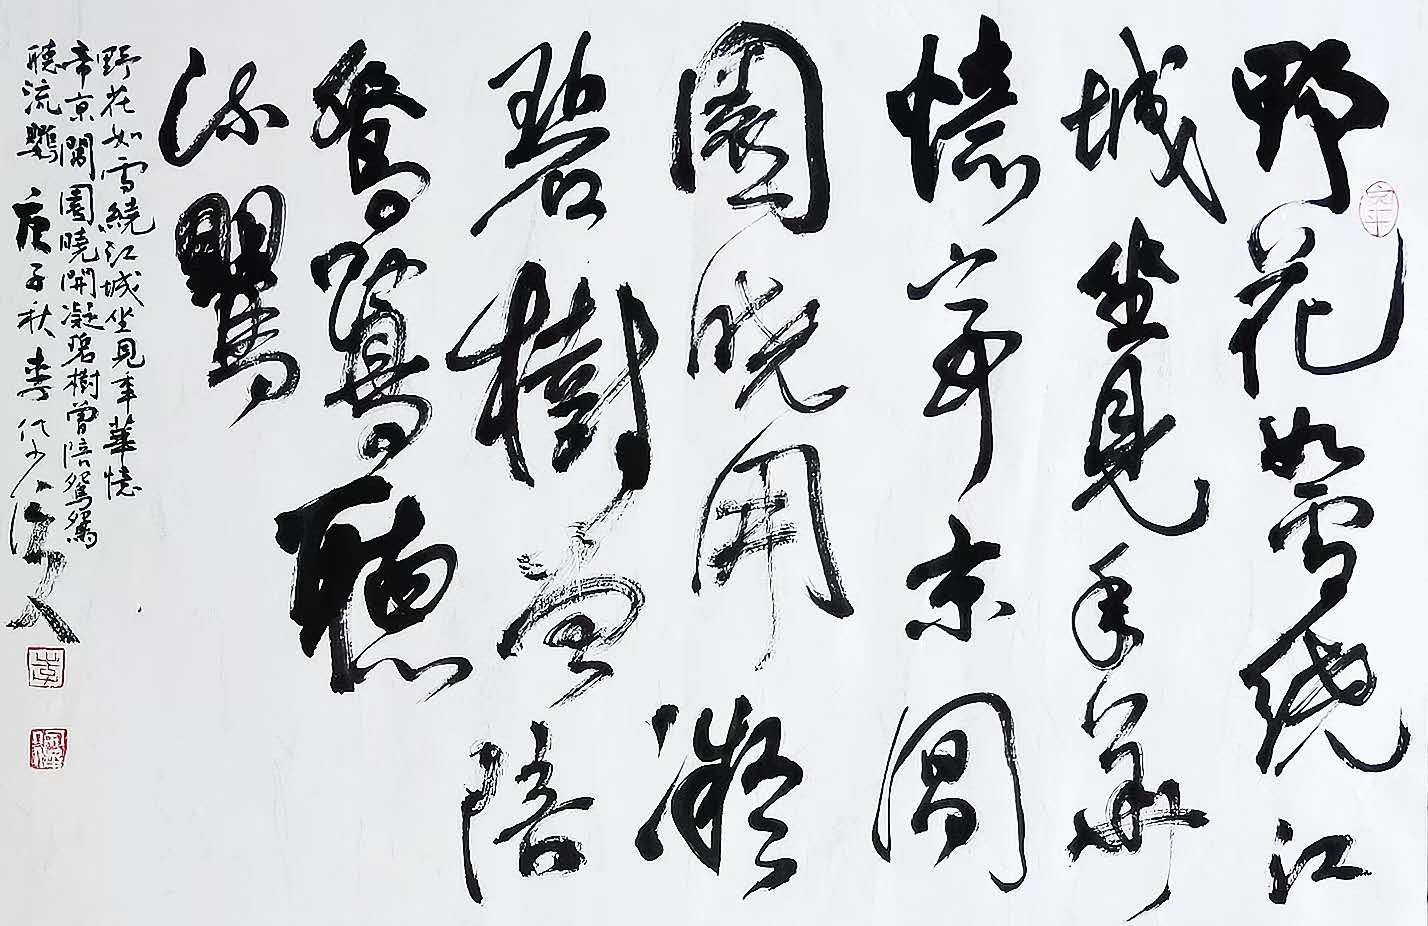 野花如雪繞江
城坐見年華
憶帝京閬
園曉開凝
碧樹曾陪
鴛鷺聽
流鸎
野花如雪繞江城坐見年華憶
帝京閬園曉開凝碧樹曾陪鴛鷺
聽流鸎 庚子秋 李